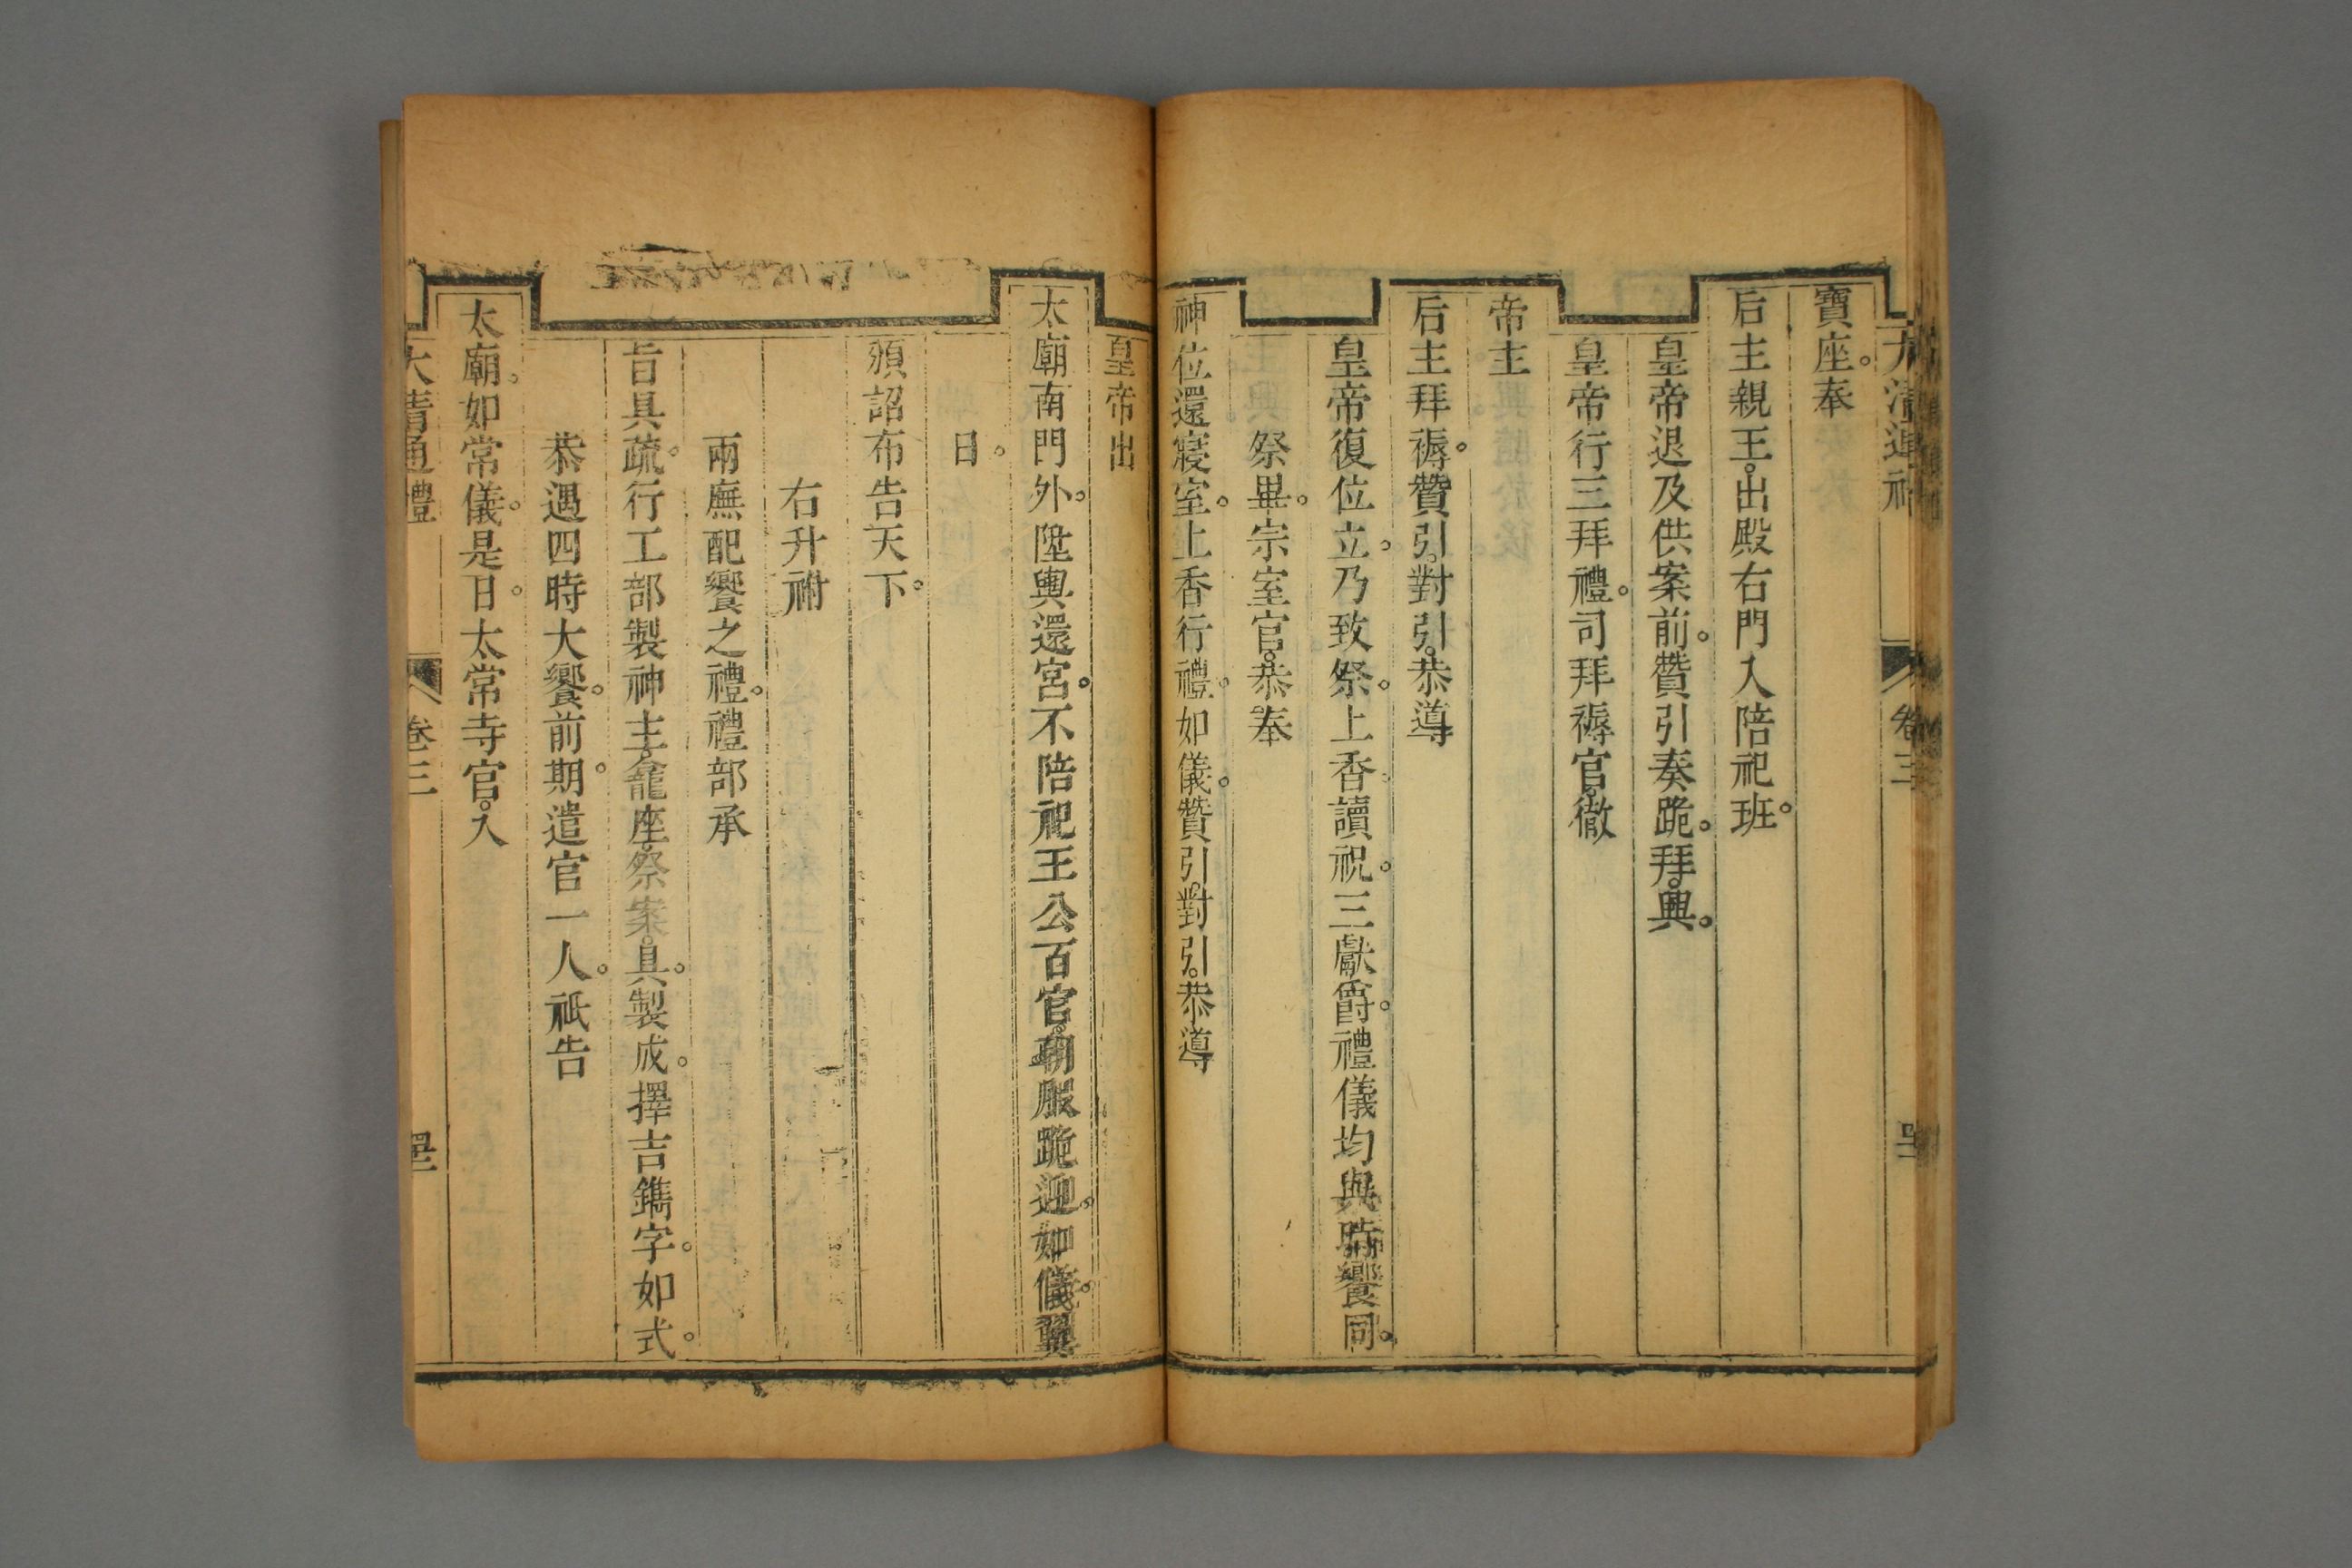 大清通禮 卷三
寶座。奉
后主親王。出殿右門入陪祀班。
皇帝退及供案前。贊引奏跪。拜。興。
皇帝行三拜禮。司拜褥官。徹
帝主
后主拜褥。贊引。對引。恭導
皇帝復位立。乃致祭。上香。讀祝。三獻爵。禮儀均與時饗同。
祭畢。宗室官。恭奉
神位還寢室。上香行禮。如儀。贊引。對引。恭導
皇帝出
太廟南門外。陞輿還宮。不陪祀王公百官。朝服跪迎。如儀。翼
日。
頒詔布告天下。
右升祔
兩廡配饗之禮。禮部承
旨具疏。行工部製神主。龕座。祭案。具。製成。擇吉鐫字。如式。
恭遇四時大饗。前期。遣官一人。祇告
太廟。如常儀。是日。太常寺官。入
大清通禮 卷三